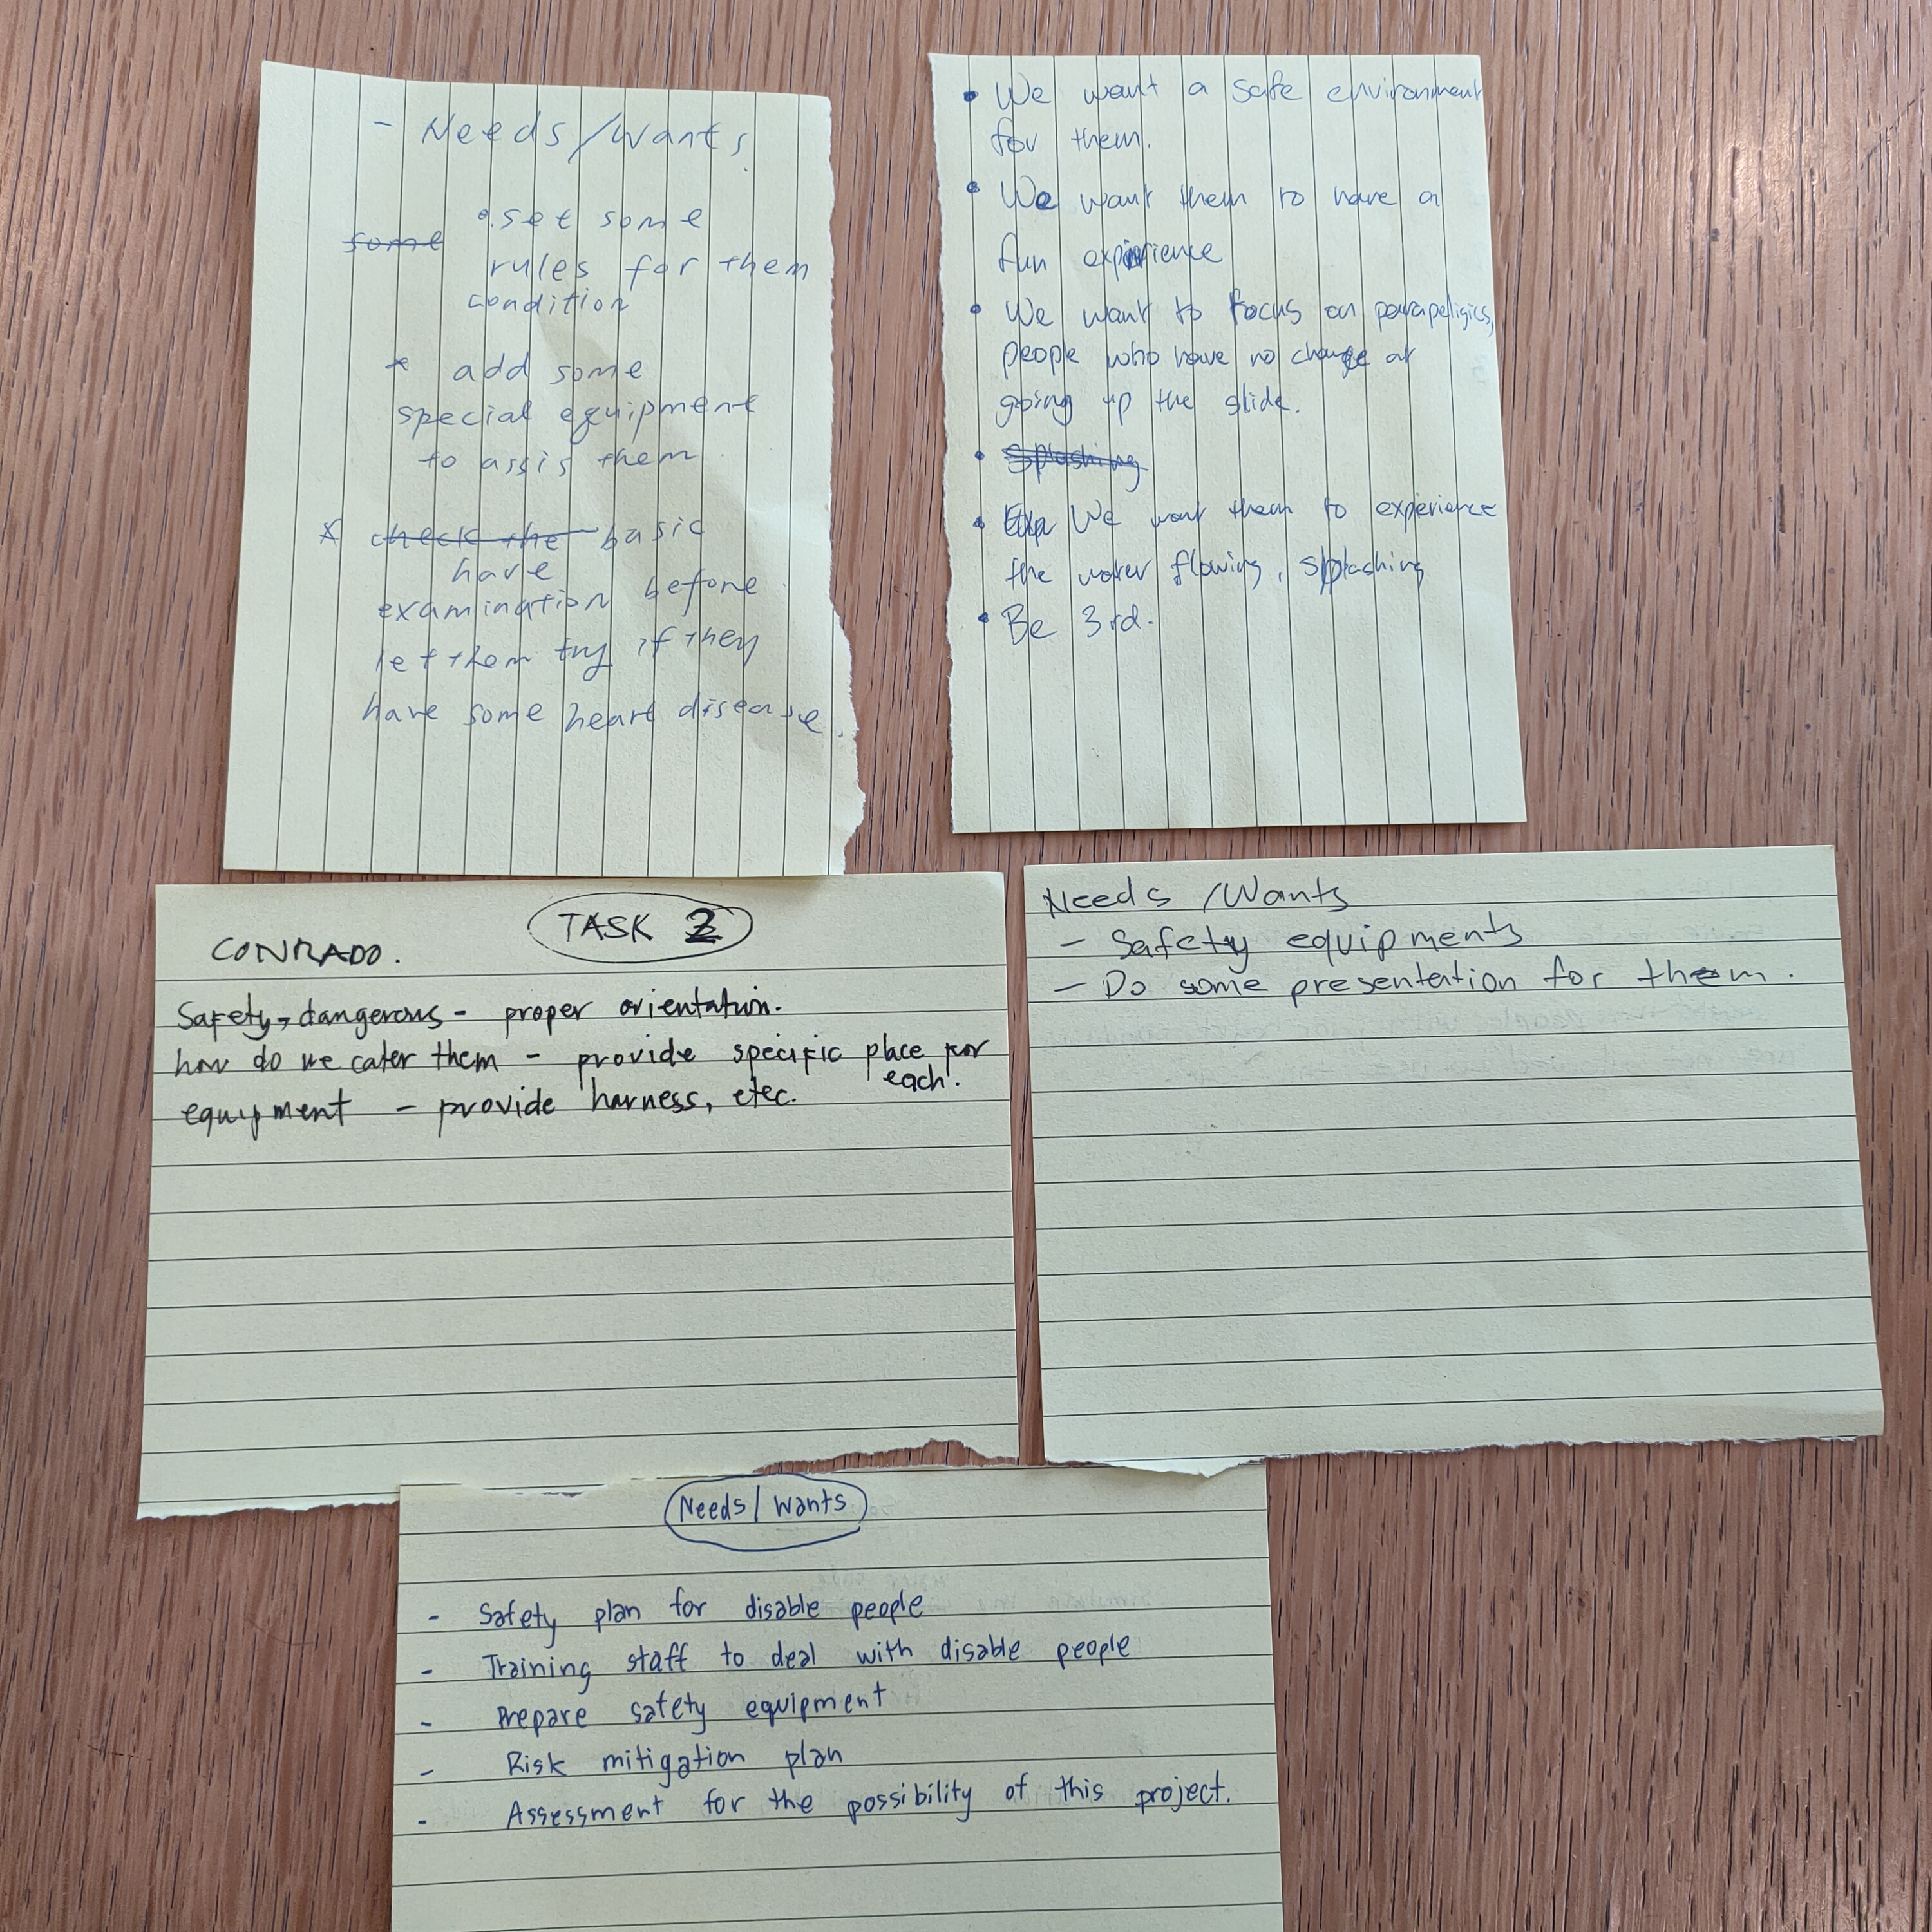 - Needs/Wants
• set some
some
rules for them
condition
* add some
special equipment
to assis them
* check the basic
have
examination before
let them try if they
have some heart disease.
• We want a safe environment
for them.
• We want them to have a
fun expirience
• We want to focus on parapeligics,
people who have no change at
going up the slide.
• Splashing
• We want them to experience
the water flowing, splashing
• Be 3rd.
TASK 2
CONRADO.
Safety, dangerous - proper orientation.
how do we cater them - provide specific place for
each.
equipment - provide harness, etec.
Needs /Wants
- Safety equipments
- Do some presentation for them.
Needs/Wants
- Safety plan for disable people
- Training staff to deal with disable people
- Prepare safety equipment
- Risk mitigation plan
- Assessment for the possibility of this project.